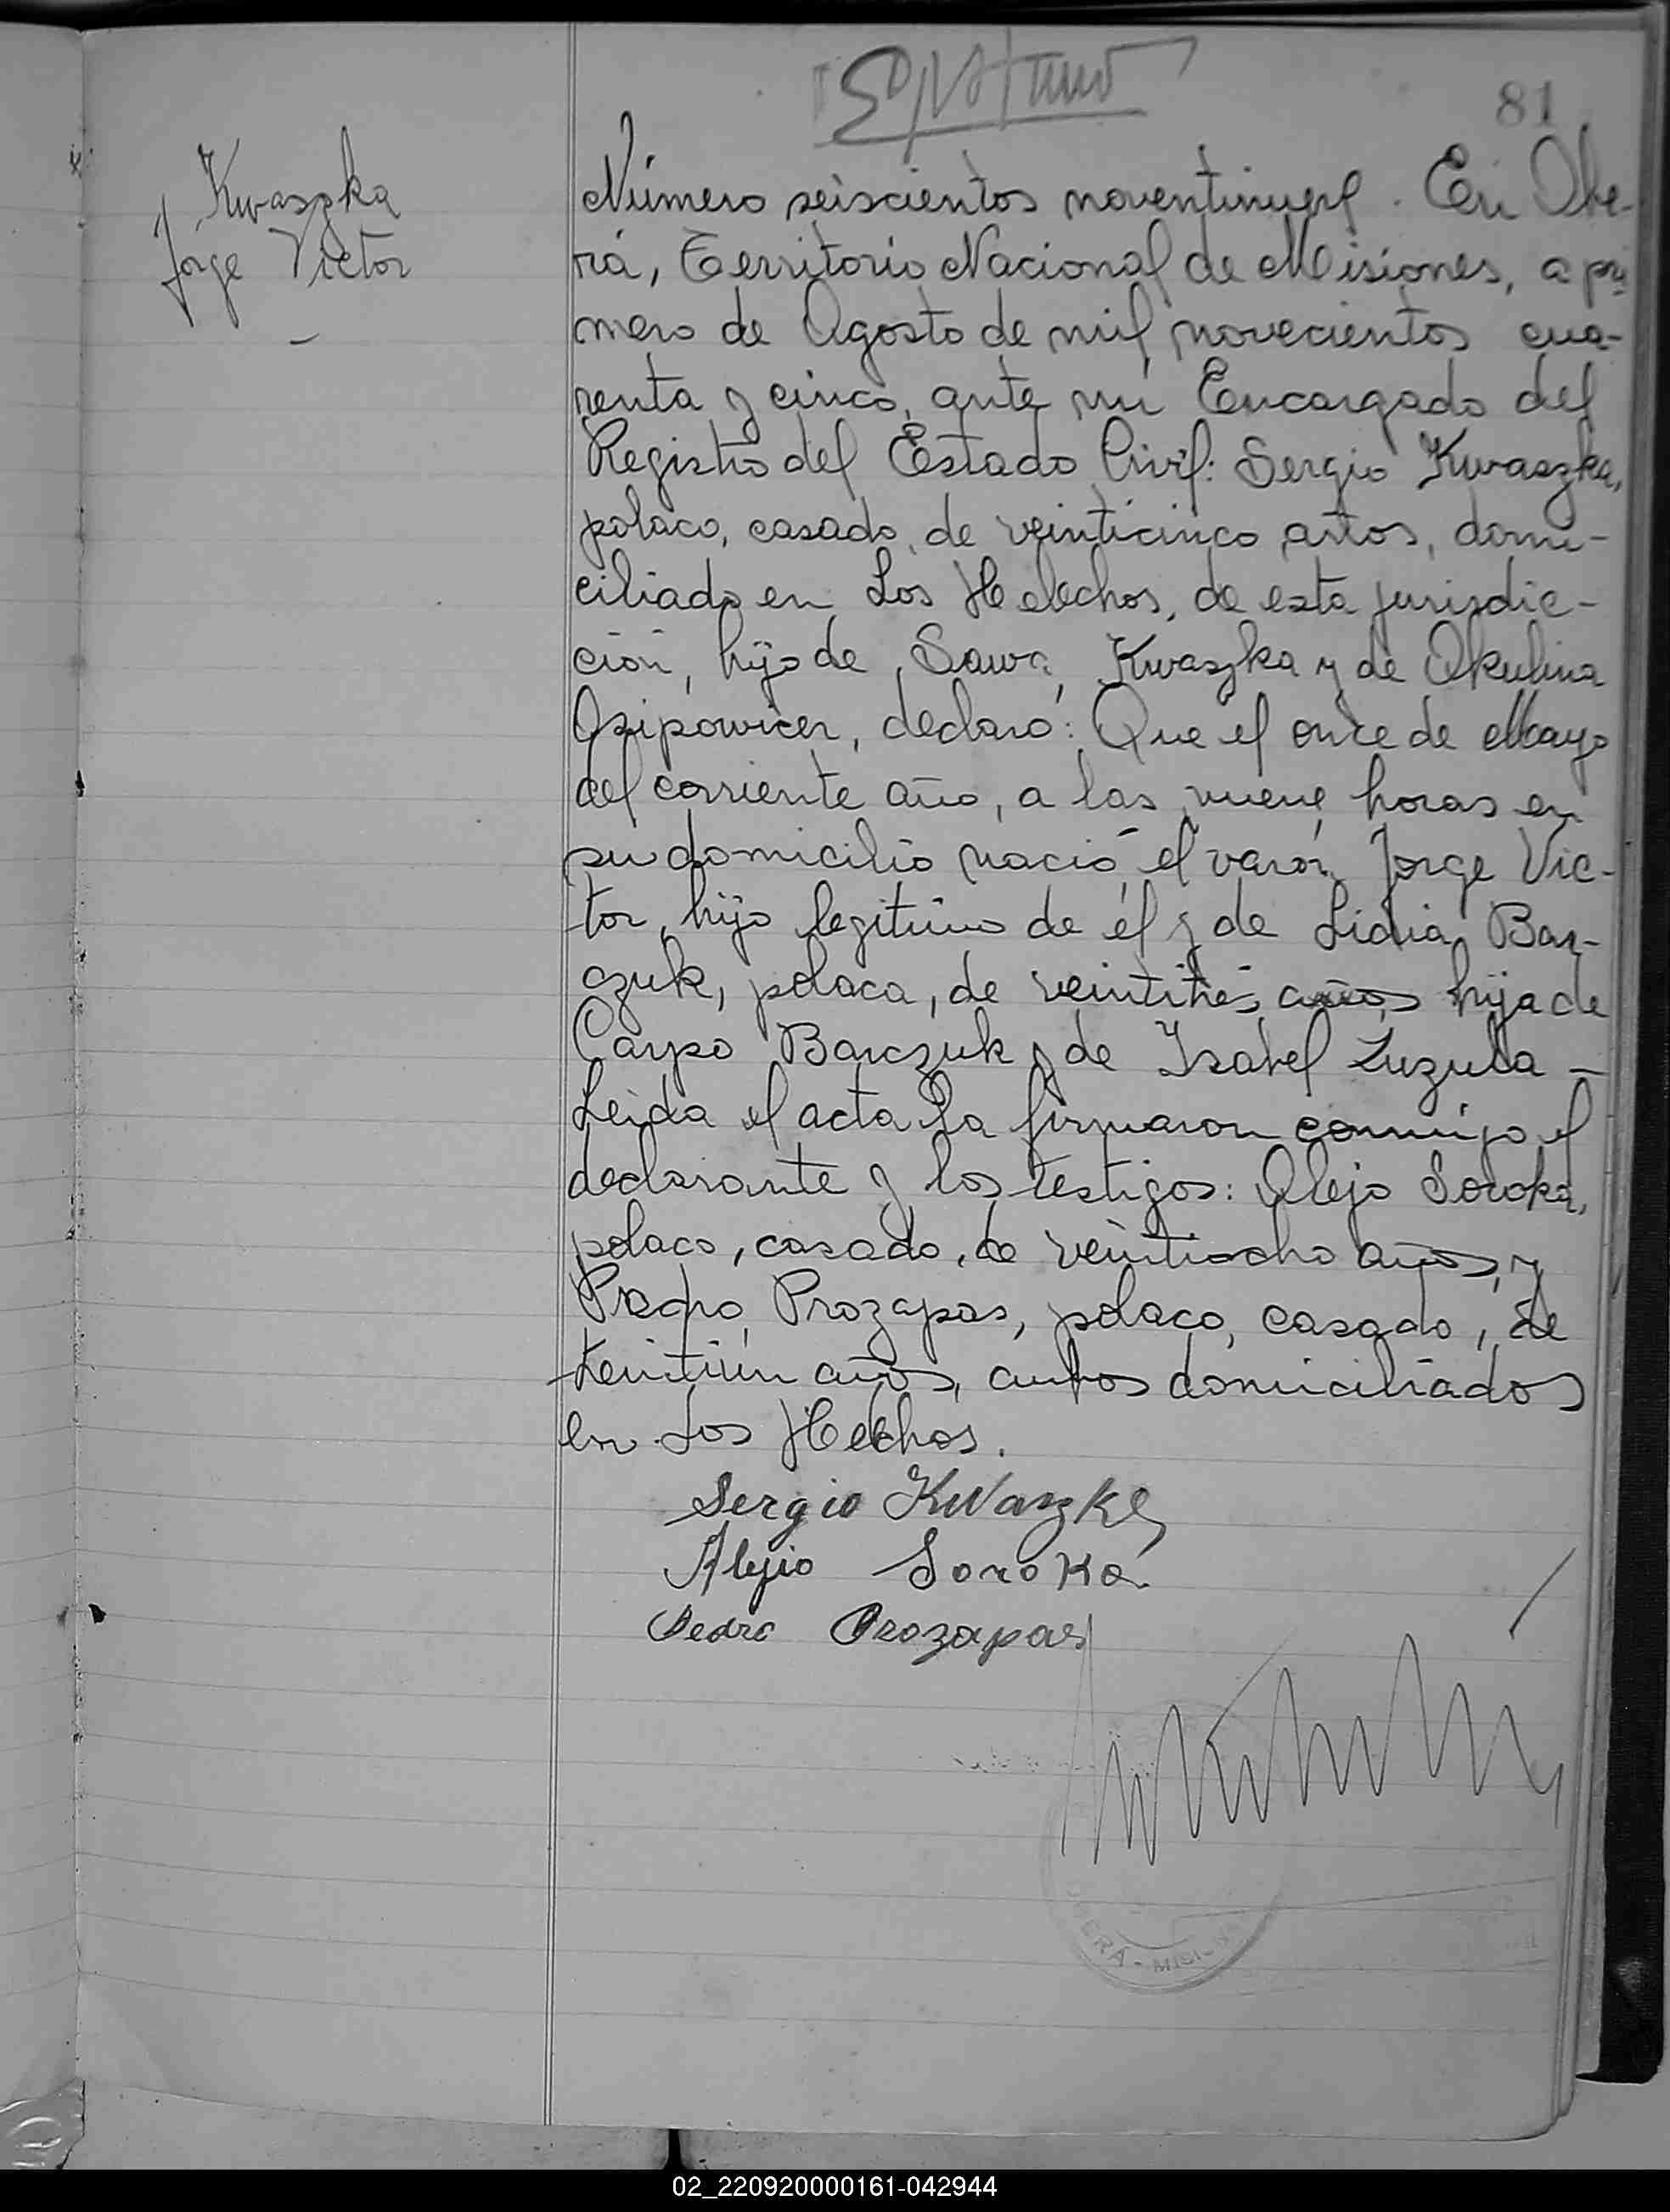 81
Kwaszka
Jorge Victor
—
Número seiscientos noventinueve. En Obe-
rá, Territorio Nacional de Misiones, a pri
mero de Agosto de mil novecientos cua-
renta y cinco, ante mi Encargado del
Registro del Estado Civil: Sergio Kwaszka,
polaco, casado, de veinticinco años, domi-
ciliado en Los Helechos, de esta jurisdic-
ción, hijo de Sawa Kwaszka y de Akulina
Osipowicer, declaró: Que el once de Mayo
del corriente año, a las nueve horas en
su domicilio nació el varón Jorge Vic-
tor, hijo legitimo de él y de Lidia Bar-
czuk, polaca, de veintitrés años hija de
Carpo Barczuk y de Isabel Luzula —
Leida el acta la firmaron conmigo el
declarante y los testigos: Alejo Soroka,
polaco, casado, de veintiocho años, y
Pedro Prozapas, polaco, casado, de
treintiún años, ambos domiciliados
en Los Helechos.
Sergio Kwaszka
Alejio Soroka
Pedro Prozapas
OBERÁ - MISIONES
02_220920000161-042944